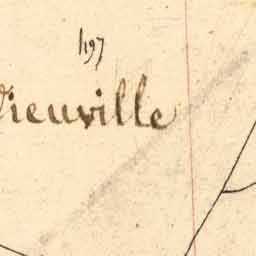 197
Dieuville